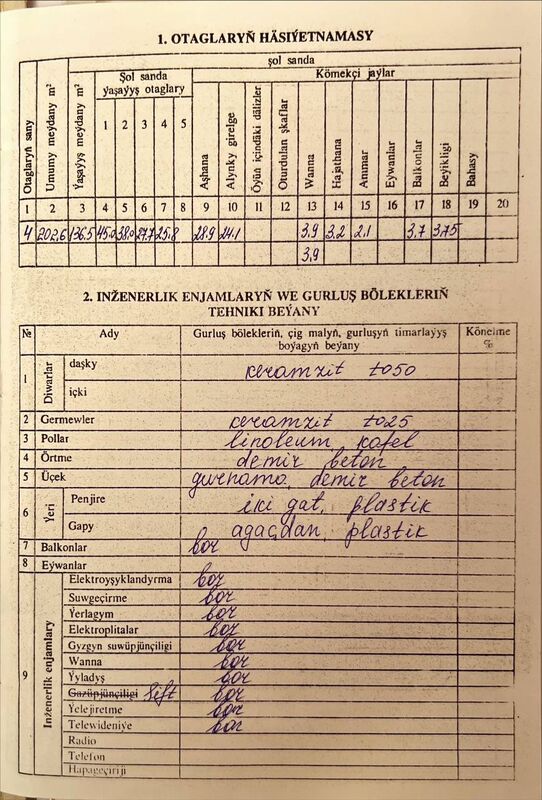 1. OTAGLARYŇ HÄSIÝETNAMASY
Otaglaryň sany
Umumy meýdany m²
Ýaşaýyş meýdany m²
şol sanda
Şol sanda ýaşaýyş otaglary
Kömekçi jaýlar
1 2 3 4 5
Aşhana
Alynky girelge
Öýüň içindäki dälizler
Oturdulan şkaflar
Wanna
Hajathana
Ammar
Eýwanlar
Balkonlar
Beýikligi
Bahasy
1 2 3 4 5 6 7 8 9 10 11 12 13 14 15 16 17 18 19 20
4 202,6 136,5 45,0 38,0 27,7 25,8 28,9 24,1 3,9 3,2 2,1 3,7 3,75
3,9
2. INŽENERLIK ENJAMLARYŇ WE GURLUŞ BÖLEKLERIŇ
TEHNIKI BEÝANY
№ Ady Gurluş bölekleriň, çig malyň, gurluşyň timarlaýyş boýagyň beýany Könelme %
1 Diwarlar daşky keramzit t050
içki
2 Germewler keramzit t025
3 Pollar linoleum kafel
4 Örtme demir beton
5 Üçek gurnama, demir beton
6 Ýeri Penjire iki gat, plastik
Gapy agaçdan, plastik
7 Balkonlar bar
8 Eýwanlar
9 Inženerlik enjamlary
Elektroyşyklandyrma bar
Suwgeçirme bar
Ýerlagym bar
Elektroplitalar bar
Gyzgyn suwüpjünçiligi bar
Wanna bar
Ýyladyş bar
Gazüpjünçiligi lift bar
Ýelejiretme bar
Telewideniýe bar
Radio
Telefon
Hapageçiriji